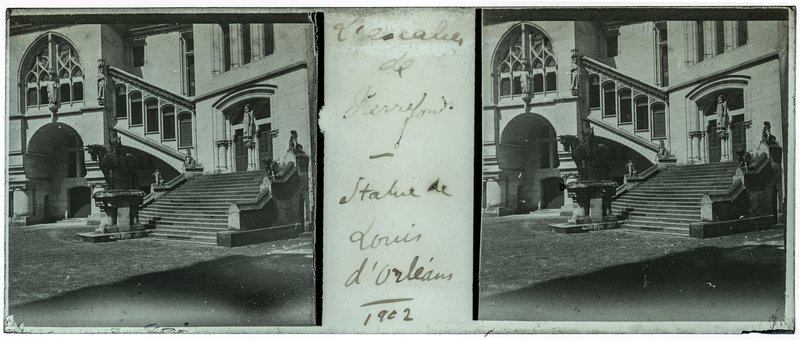 L'escalier
de
Pierrefonds
—
Statue de
Louis
d'Orléans
1902